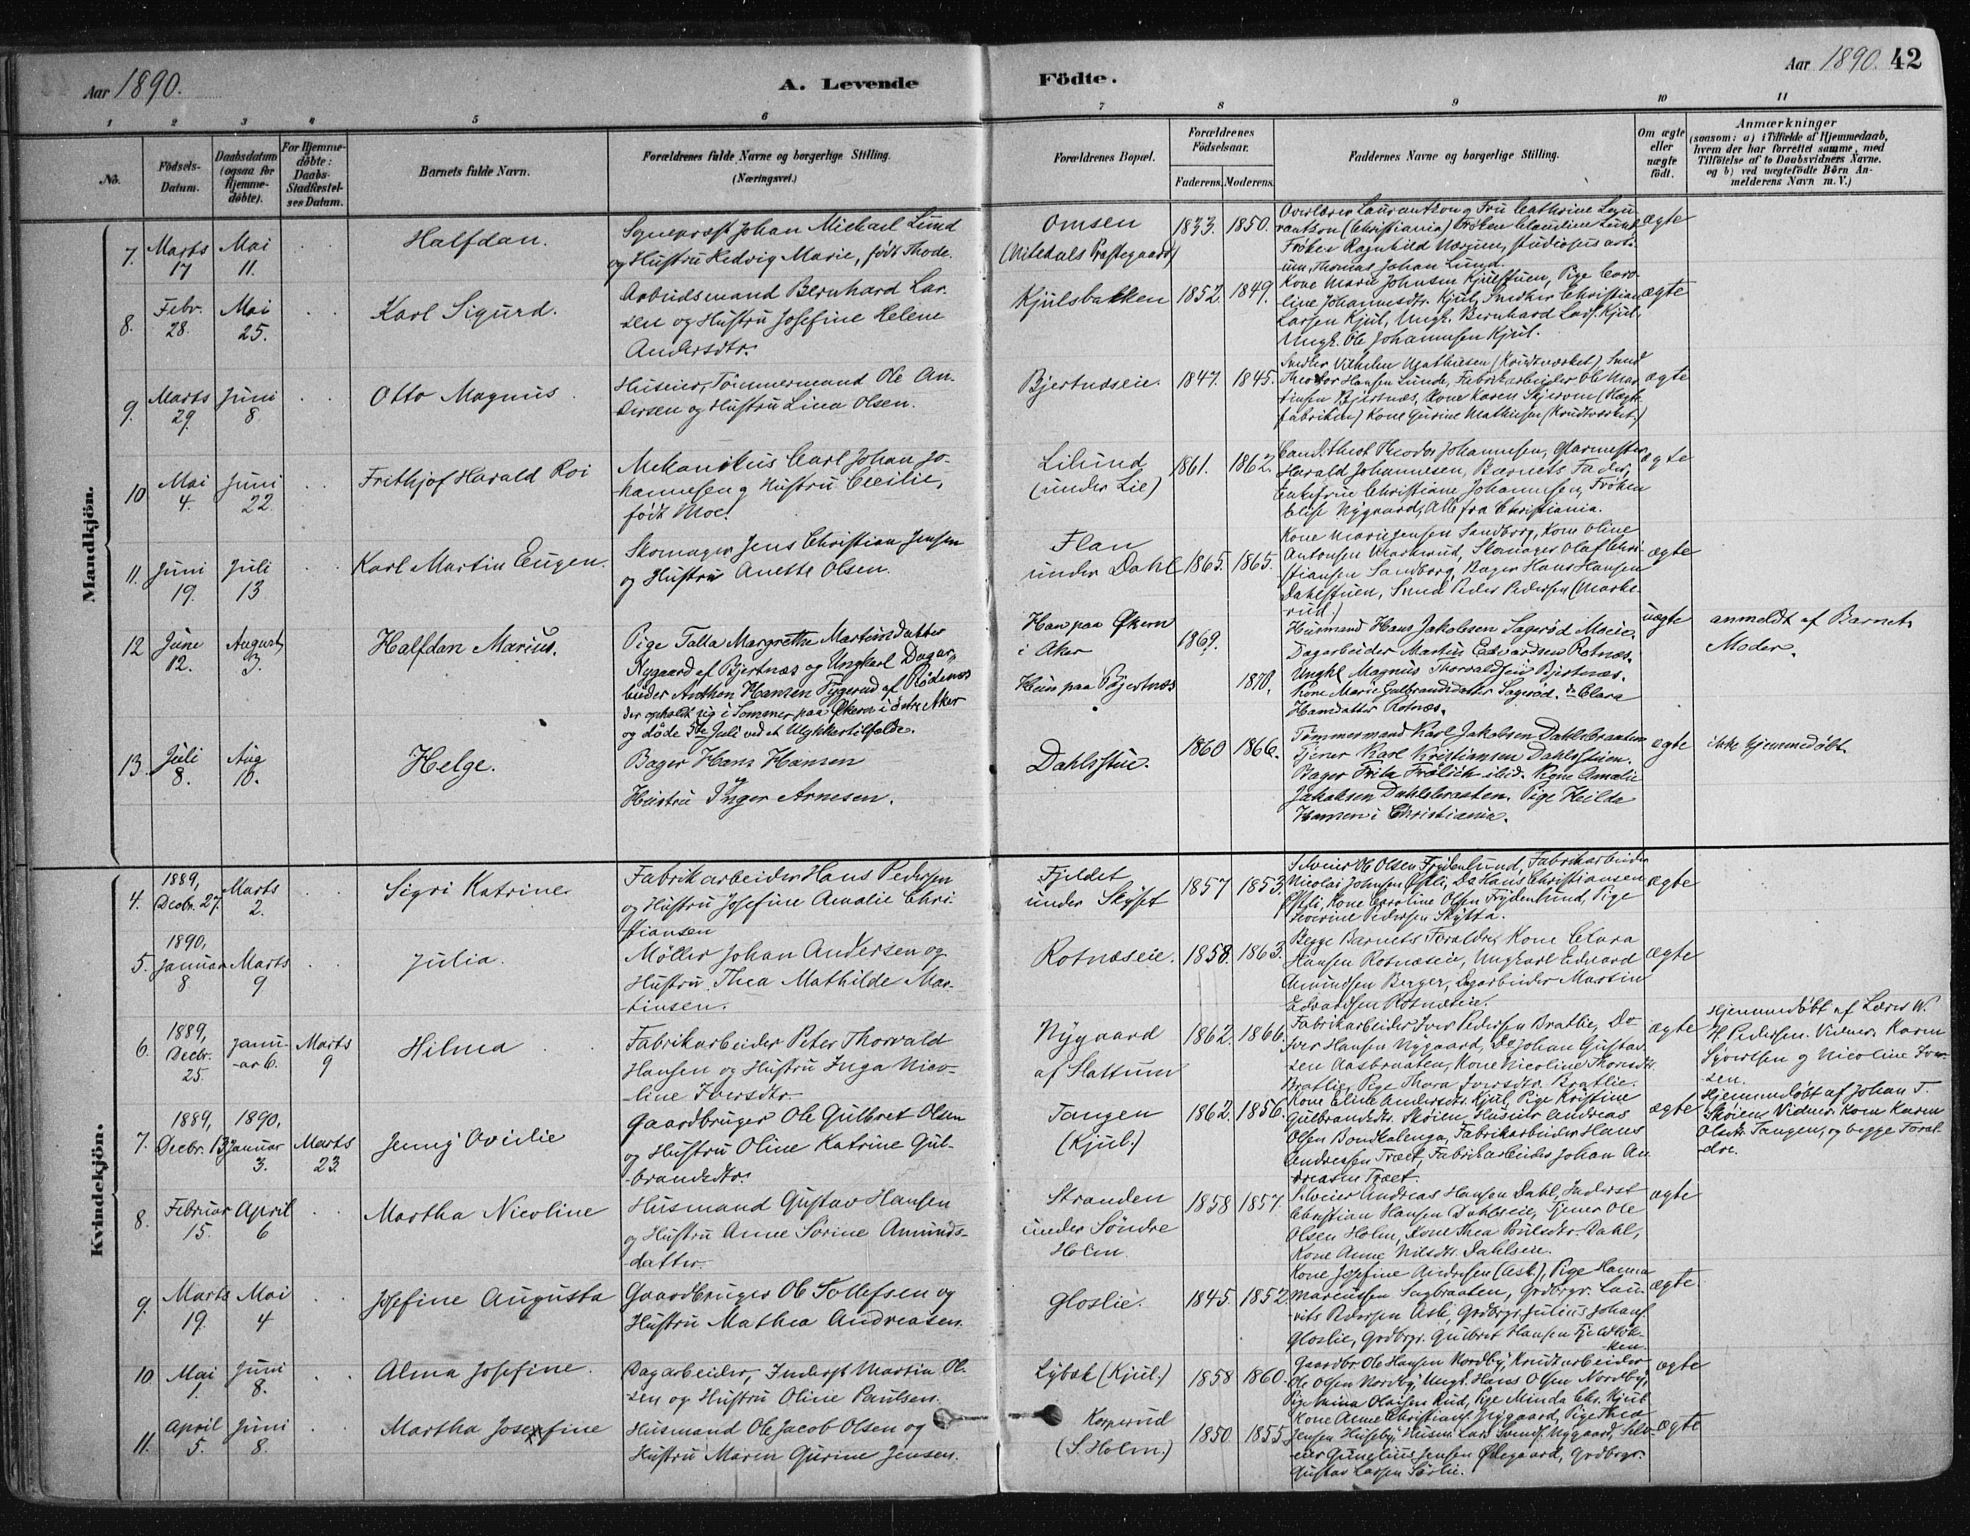 Aar 1890.
A. Levende
Födte.
Aar 1890. 42
1 2 3 4 5 6 7 8 9 10 11
No.
Födsels-
Datum.
Daabsdatum
(ogsaa for
Hjemme-
döbte).
For Hjemme-
döbte:
Daabs-
Stadfæstel-
ses Datum.
Barnets fulde Navn.
Forældrenes fulde Navne og borgerlige Stilling.
(Næringsvei.)
Forældrenes Bopæl.
Forældrenes
Födselsaar.
Faderens. Moderens.
Faddernes Navne og borgerlige Stilling.
Om ægte
eller
uægte
födt.
Anmærkninger
(saasom: a) i Tilfælde af Hjemmedaab,
hvem der har forrettet samme, med
Tilföielse af to Daabsvidners Navne.
og b) ved uægtefödte Börn An-
melderens Navn m. V.)
Mandkjön.
7. Marts 17 Mai 11. Halfdan.
Sognepræst Johan Michael Lund
og Hustru Hedvig Marie, født Thode.
Omsen
(Nitedals Præstegaard)
1833. 1850.
Overlærer Laurantzon og Fru Cathrine Lau-
rantzon (Christiania) Frøken Claudine Lund
Frøken Ragnhild studiosus art-
ium Thomas Johan Lund.
ægte
8. Febr. 28. Mai 25. Karl Sigurd.
Arbeidsmand Bernhard Lar-
sen og Hustru Josefine Helene
Andersdtr.
Kjulsbakken
1852. 1849.
Kone Marie Johnsen Kjulstuen, Pige Caro-
line Johannesdtr. Kjul, Snedker Christian
Larsen Kjul, Ungk. Bernhard Lars. Kjul,
Ungk. Ole Johannesen Kjul.
ægte
9. Marts 29. Juni 8. Otto Magnus
Huseier, Tømmermand Ole An-
dersen og Hustru Lina Olsen.
Bjertnæseie.
1847. 1845.
Smed Vilhelm Mathisen (Krudtværket) Smed
Theodor Hansen Lunde, Fabrikarbeider Ole Mar-
tinsen Bjertnæs, Kone Karen Skjerven (Hagl-
fabriken) Kone Gurine Mathisen (Krudtværket.)
ægte
10. Mai 4. Juni 22. Frithjof Harald Roi
Mekanikus Carl Johan Jo-
hannesen og Hustru Cecilie,
født Moe.
Lilund
(under Lie)
1861. 1862.
Cand. theol Theodor Johannesen, Glarmester
Harald Johannesen, Barnets Fader,
Enkefrue Christiane Johannesen, Frøken
Elise Nygaard, Alle fra Christiania.
ægte
11. Juni 19. Juli 13 Karl Martin Eugen.
Skomager Jens Christian Jensen
og Hustru Anette Olsen.
Flan
under Dahl
1865. 1865.
Kone Marie Jensen Sandborg, Kone Oline
Antonsen Markerud, Skomager Olaf Chri-
stiansen Sandborg, Bager Hans Hansen
Dahlstuen, Smed Peder Pedersen (Marke-
rud.)
ægte
12 June 12. August 3. Halfdan Marius.
Pige Talla Margrethe Martinsdatter
Nygaard af Bjertnæs og Ungkarl Dagar-
beider Anthon Hansen Tygerud af Rødenæs
der opholdt sig i Sommer paa Økern i østre Aker
og døde 5te Juli ved et Ulykkestilfælde.
Han paa Økern
i Aker
Hun paa Bjertnæs
1869.
1870.
Husmand Hans Jakobsen Sagerød Moeie
Dagarbeider Martin Edvardsen Rotnæs.
Ungkl Magnus Thorvaldsen Bjertnæs.
Kone Marie Gulbrandsdatter Sagerød. do Clara
Hansdatter Rotnæs.
uægte
anmeldt af Barnets
Moder.
13. Juli 8. Aug 10. Helge.
Bager Hans Hansen
og
Hustru Inger Arnesen.
Dahlsstue.
1860 1866.
Tømmermand Karl Jakobsen Dahlsbraaten
Tjener Karl Kristiansen Dahlsstuen.
Bager Fritz Frølich ibid. Kone Amalie
Jakobsen Dahlsbraaten. Pige Hilda
Hansen i Christiania.
ægte
ikke hjemmedøbt.
Kvindekjön.
4. 1889, Decbr. 27. Marts 2. Sigri Katrine
Fabrikarbeider Hans Pedersen
og Hustru Josefine Amalie Chri-
stiansen
Fjeldet
under Skyset
1857 1853.
Selveier Ole Olsen Frydenlund, Fabrikarbeider
Nicolai Johnsen Østli, Do Hans Christiansen
Østli, Kone Caroline Olsen Frydenlund, Pige
Severine Pedersen Skytta.
ægte
5. 1890, Januar 8 Marts 9 Julia.
Møller Johan Andersen og
Hustru Thea Mathilde Mar-
tinsen.
Rotnæseie.
1858. 1863.
Begge Barnets Forældre, Kone Clara
Hansen Rotnæseie, Ungkarl Edvard
Amundsen Berger, Dagarbeider Martin
Edvardsen Rotnæseie.
ægte
6. 1889, Decbr. 25. Janu-
ar 6. Marts 9 Hilma
Fabrikarbeider Peter Thorvald
Hansen og Hustru Inga Nico-
line Iversdtr.
Nygaard
af Slattum
1862. 1866.
Fabrikarbeider Iver Pedersen Bratlie, Do
Iver Hansen Nygaard, Do Johan Gustav-
sen Aasbraaten, Kone Nicoline Thorsdtr.
Bratlie, Pige Thora Iversdtr. Bratlie.
ægte
Hjemmedøbt af Lærer W.
H. Pedersen. Vidner: Karen
Syvertsen og Nicoline Iver-
sen.
7. 1889, Decbr. 13 1890, Januar 3. Marts 23. Jenny Ovidie
Gaardbruger Ole Gulbret Olsen
og Hustru Oline Katrine Gul-
brandsdtr.
Tangen
(Kjul.)
1862. 1856.
Kone Eline Andersdtr. Kjul, Pige Kristine
Gulbrandsdtr. Skøien, Huseier Andreas
Olsen Bondkalenga, Fabrikarbeider Hans
Andresen Træet, Fabrikarbeider Johan An-
dreasen Træet.
ægte
Hjemmedøbt af Johan T.
Skøien, Vidner: Kone Karen
Olsdtr. Tangen, og begge Foræl-
dre.
8. Februar 15. April 6 Martha Nicoline
Husmand Gustav Hansen
og Hustru Anne Sørine Amunds-
datter.
Stranden
under Søndre
Holm.
1858 1857.
Selveier Andreas Hansen Dahl, Inderst
Christian Hansen Dahlseie, Tjener Ole
Olsen Holm, Kone Thea Poulsdtr. Dahl,
Kone Anne Nilsdtr. Dahlseie.
ægte
9. Marts 19. Mai 4 Josefine Augusta
Gaardbruger Ole Tollefsen og
Hustru Mathea Andreasen.
Gloslie.
1845. 1852.
Kone Josefine Andresen (Ask), Pige Hanna
Marcussen Sagbraaten, Grdbrgr. Lau-
rits Pedersen Ask, Grdbrgr. Julius Johans.
Gloslie, Grdbrgr. Gulbret Hansen Fjeldløk-
ken.
ægte.
10. Mai 1. Juni 8. Alma Josefine.
Dagarbeider, Inderst Martin Ol-
sen og Hustru Oline Paulsen.
Lybæk (Kjul.)
1858 1860.
Gaardbr. Ole Hansen Nordby, Krudtarbeider
Ole Olsen Nordby, Ungk. Hans Olsen Nordby,
Pige Olaisen Rud, Pige Minda Chr. Kjul
ægte
11. April 5. Juni 8. Martha Josefine
Husmand Ole Jacob Olsen og
Hustru Maren Gurine Jensen.
Kasperud
(S. Holm.)
1850. 1855.
Kone Anne Christians. Nygaard, Pige Thea
Jensen Huseby, Husm. Lars Svends. Nygaard, Selv-
eier Gunelius Jensen Ødegaard, Grdbrgr.
Gustav Larsen Sørlie.
ægte